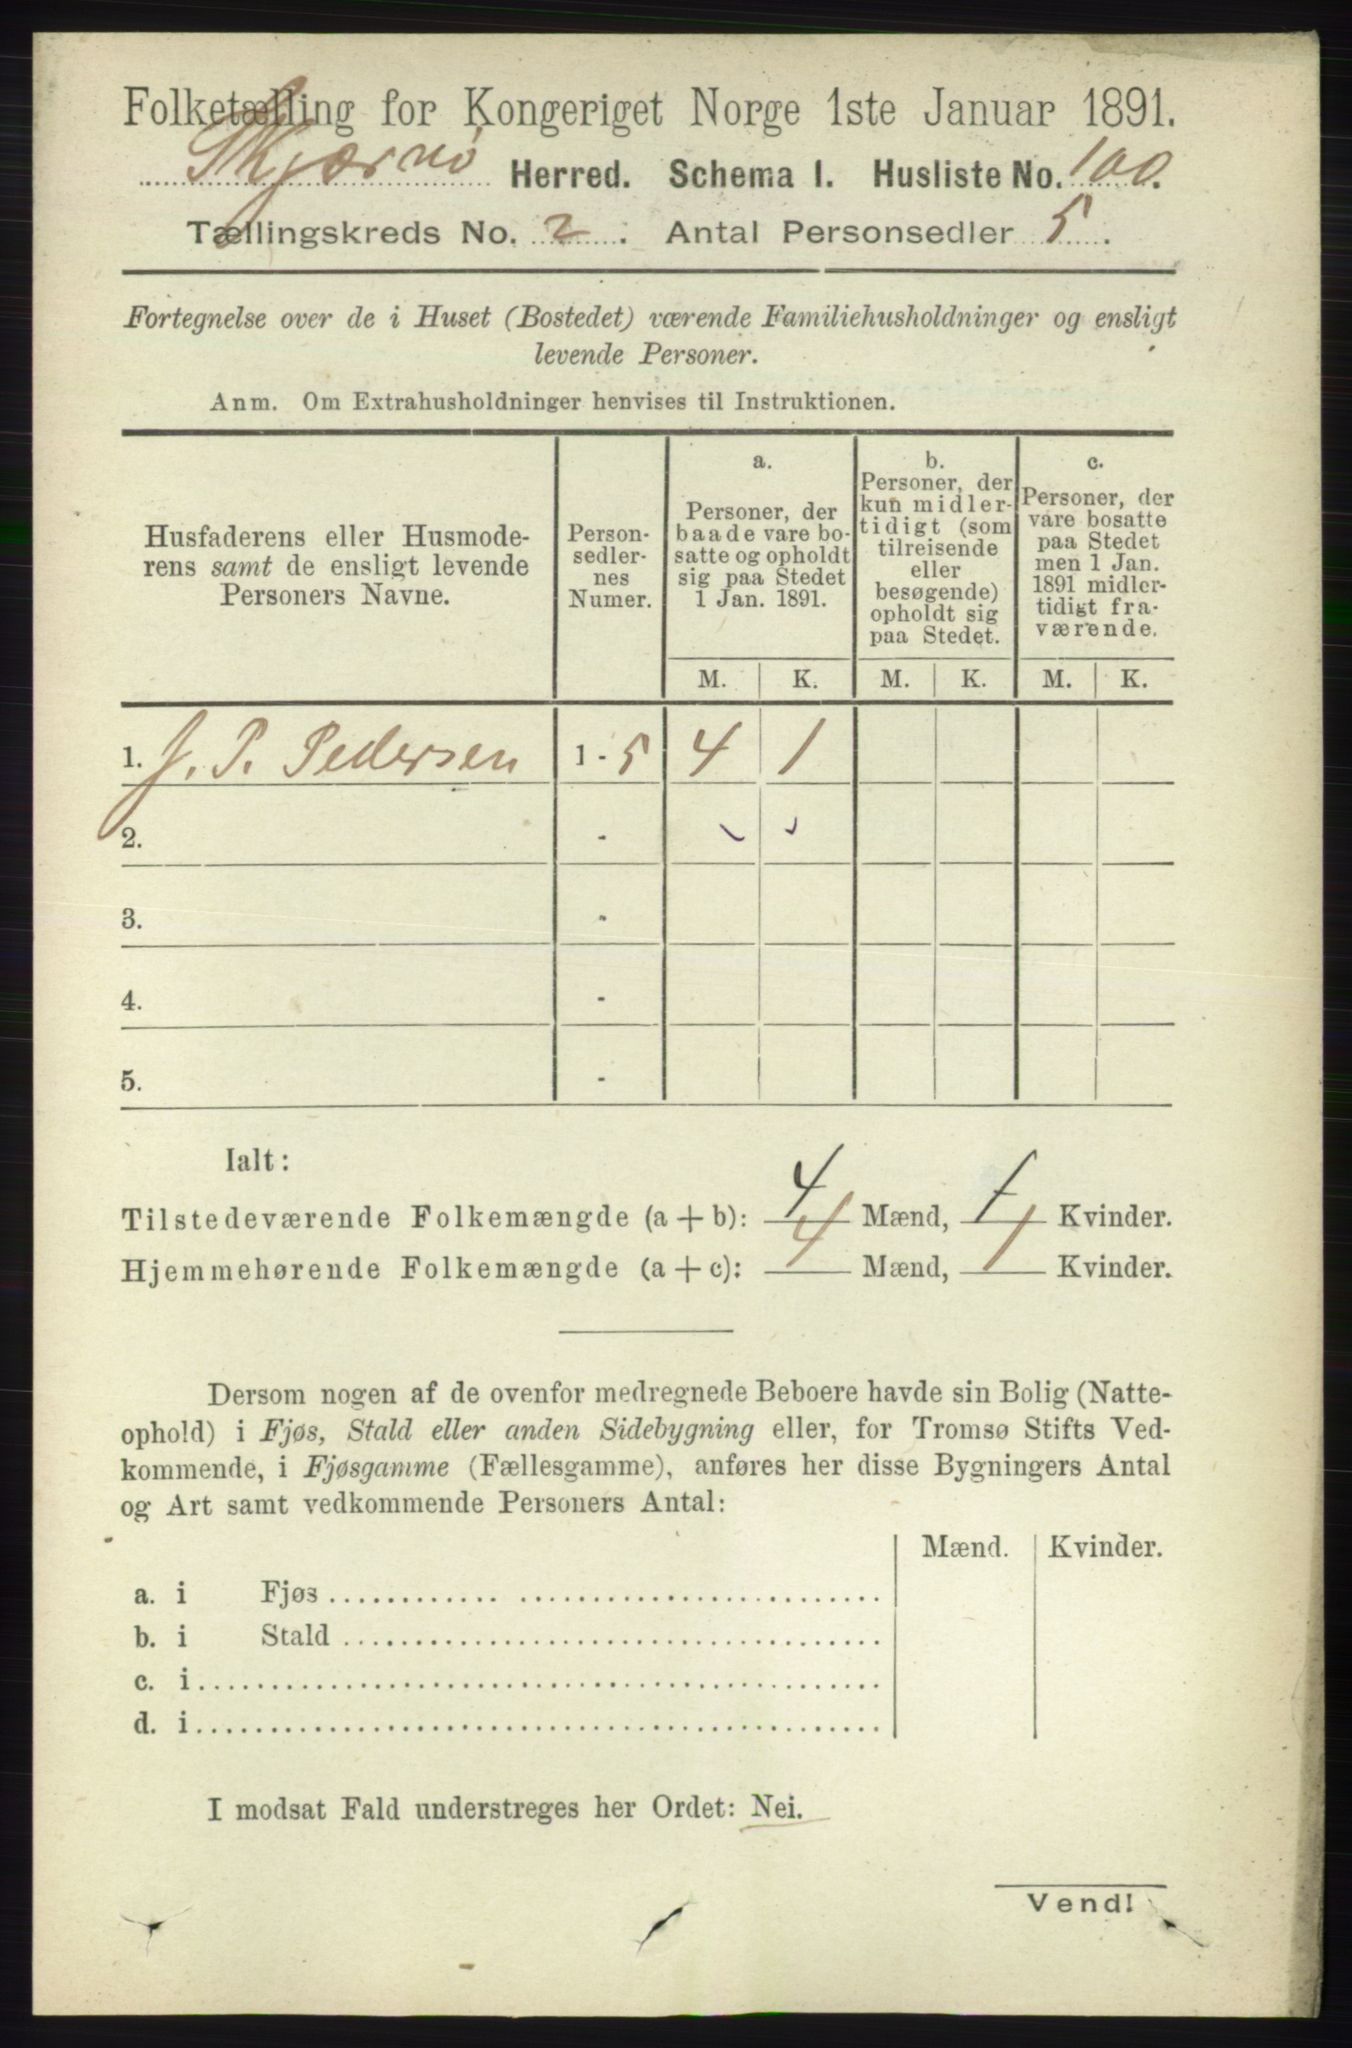 Folketælling for Kongeriget Norge 1ste Januar 1891.
Skjærnø Herred. Schema I. Husliste No. 100.
Tællingskreds No. 2. Antal Personsedler 5.
Fortegnelse over de i Huset (Bostedet) værende Familiehusholdninger og ensligt
levende Personer.
Anm. Om Extrahusholdninger henvises til Instruktionen.
Husfaderens eller Husmode-
rens samt de ensligt levende
Personers Navne.
Person-
sedler-
nes
Numer.
a.
Personer, der
baade vare bo-
satte og opholdt
sig paa Stedet
1 Jan. 1891.
b.
Personer, der
kun midler-
tidigt (som
tilreisende
eller
besøgende)
opholdt sig
paa Stedet.
c.
Personer, der
vare bosatte
paa Stedet
men 1 Jan.
1891 midler-
tidigt fra-
værende.
M. K. M. K. M. K.
1. J. P. Pedersen 1 - 5 4 1
2. -
3. -
4. -
5. -
Ialt:
Tilstedeværende Folkemængde (a + b): 4 Mænd, 1 Kvinder.
Hjemmehørende Folkemængde (a + c): 4 Mænd, 1 Kvinder.
Dersom nogen af de ovenfor medregnede Beboere havde sin Bolig (Natte-
ophold) i Fjøs, Stald eller anden Sidebygning eller, for Tromsø Stifts Ved-
kommende, i Fjøsgamme (Fællesgamme), anføres her disse Bygningers Antal
og Art samt vedkommende Personers Antal:
Mænd. Kvinder.
a. i Fjøs
b. i Stald
c. i
d. i
I modsat Fald understreges her Ordet: Nei.
Vend!